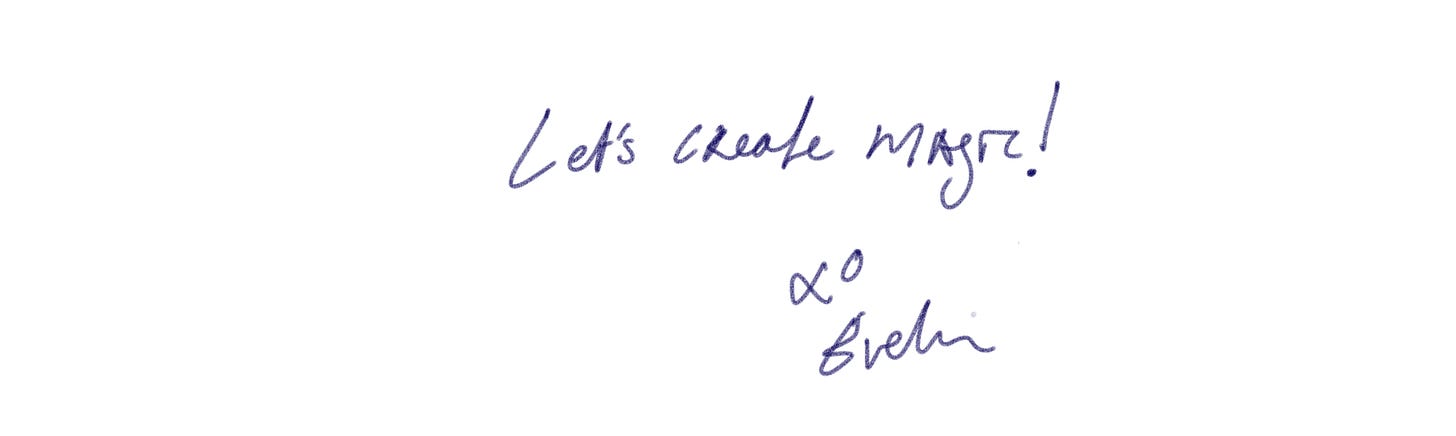 Let's create magic!
xo
Evelin